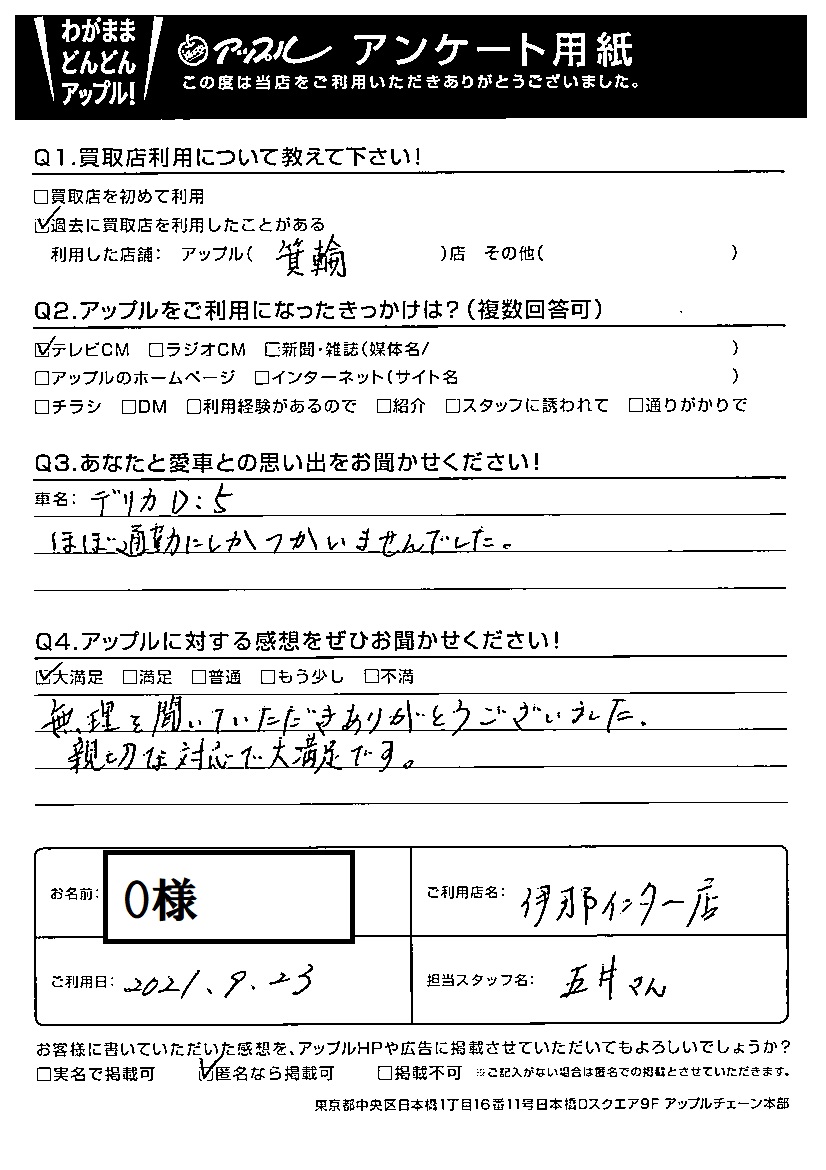 わがまま
どんどん
アップル!
アップル アンケート用紙
この度は当店をご利用いただきありがとうございました。
Q1.買取店利用について教えて下さい!
□買取店を初めて利用
☑過去に買取店を利用したことがある
利用した店舗: アップル( 箕輪 )店 その他( )
Q2.アップルをご利用になったきっかけは?(複数回答可)
☑テレビCM □ラジオCM □新聞・雑誌(媒体名/ )
□アップルのホームページ □インターネット(サイト名 )
□チラシ □DM □利用経験があるので □紹介 □スタッフに誘われて □通りがかりで
Q3.あなたと愛車との思い出をお聞かせください!
車名: デリカD:5
ほぼ通勤にしかつかいませんでした。
Q4.アップルに対する感想をぜひお聞かせください!
☑大満足 □満足 □普通 □もう少し □不満
無理を聞いていただきありがとうございました。
親切な対応で大満足です。
お名前: O様
ご利用店名: 伊那インター店
ご利用日: 2021.9.23
担当スタッフ名: 五井さん
お客様に書いていただいた感想を、アップルHPや広告に掲載させていただいてもよろしいでしょうか?
□実名で掲載可 ☑匿名なら掲載可 □掲載不可 ※ご記入がない場合は匿名での掲載とさせていただきます。
東京都中央区日本橋1丁目16番11号日本橋Dスクエア9F アップルチェーン本部